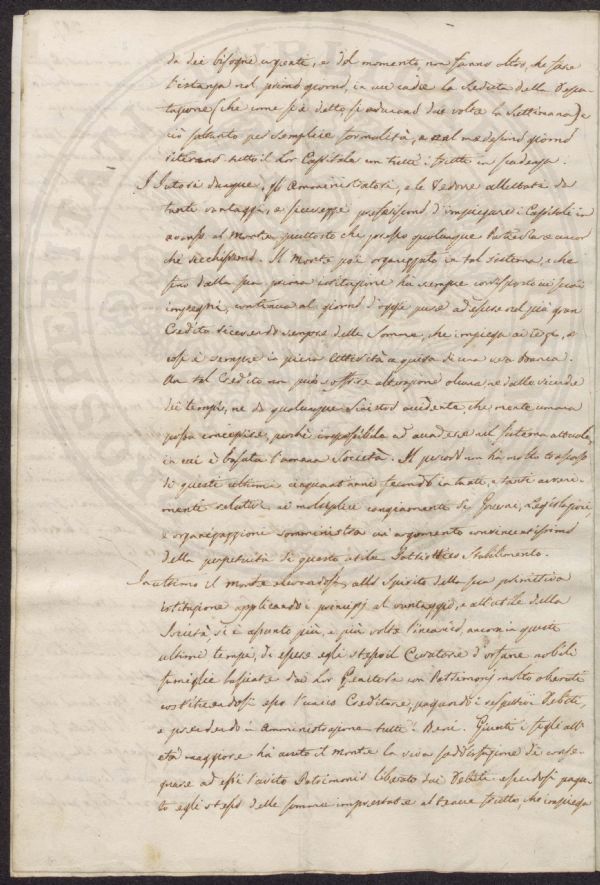 da dei bisogni urgenti, e del momento non fanno altro, che fare
l'istanza nel primo giorno, in cui cade la seduta della Depu-
tazione (che come si è detto si aduna due volte la settimana) e
ciò soltanto per semplice formalità, e nel medesimo giorno
ritirano tutto il lor Capitale con tutti i frutti in scadenza.
I Tutori dunque, gli Amministratori, e le Vedove allettati da
tanti vantaggi, e sicurezze preferiscono d'impiegare i Capitali in
avanzo al Monte, piuttosto che presso qualunque Particolare ancor
che ricchissimo. Il Monte poi organizzato in tal sistema, e che
fino dalla sua prima istituzione ha sempre corrisposto ai suoi
impegni, continua al giorno d'oggi pure ad essere nel più gran
Credito ricevendo sempre delle Somme, che impiega ai terzi, e
così è sempre in piena attività a guisa di una vera Banca.
Un tal Credito non può soffrire alterazione alcuna, ne dalle vicende
dei tempi, ne da qualunque sinistro accidente, che mente umana
possa concepire, perchè impossibile ad accadere nel sistema attuale,
in cui è basata l'umana Società. Il periodo non ha molto trascorso
di questi ultimi cinquant'anni fecondo in tante, e tante
moltiplici cangiamenti di Governi, Legislazioni,
e organizzazioni somministra un argomento convincentissimo
della perpetuità di questo utile Patriottico Stabilimento.
In ultimo il Monte allo Spirito della sua primitiva
istituzione applicando i principj al vantaggio, e all'utile della
Società si è appunto più, e più volte ancora in questi
ultimi tempi, di essere egli stesso il Curatore d'orfane nobili
famiglie lasciate dai lor Genitori con Patrimonj molto oberati
costituendosi esso l'unico Creditore, pagando i rispettivi Debiti,
e prendendo in Amministrazione tutti i Beni. Giunti i figli all'
età maggiore ha avuto il Monte la viva soddisfazione di conse-
gnare ad essi l'avito Patrimonio liberato dai Debiti essendosi paga-
to egli stesso delle somme imprestate al tenue frutto, che impiega